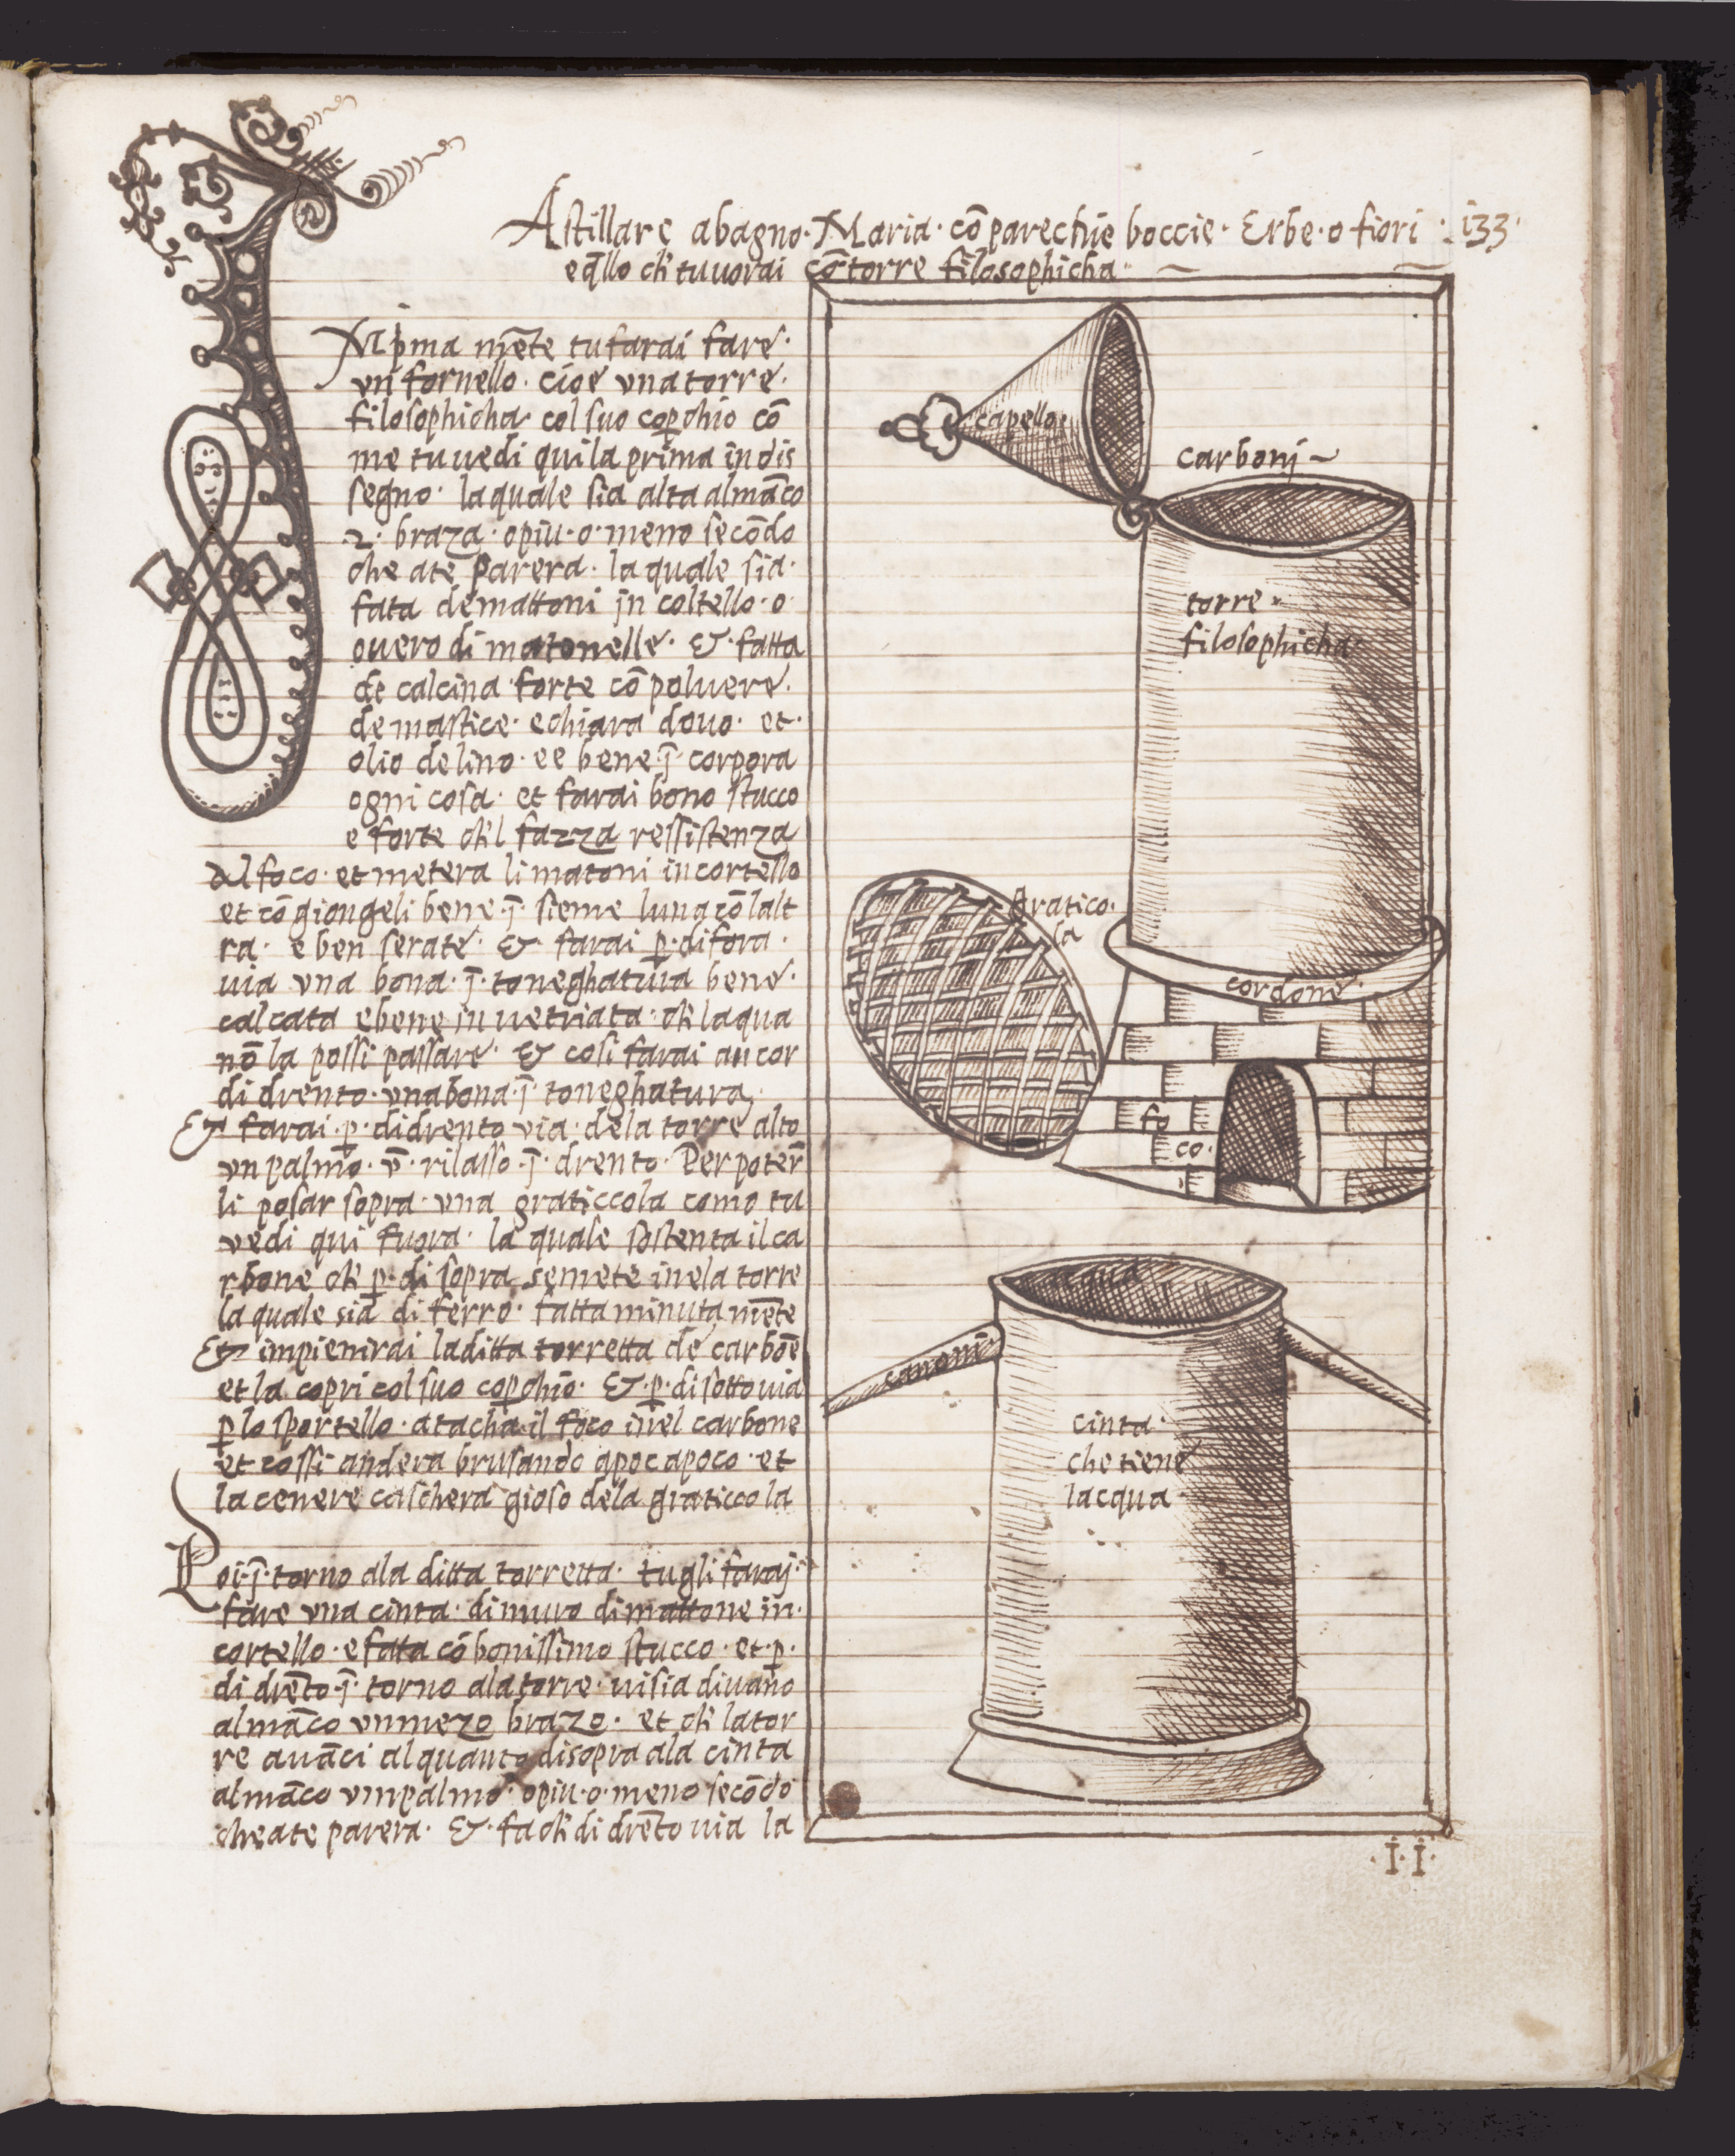 Astillare abagno · Maria · cō parechie boccie · Erbe · o fiori · 133 ·
eq̄llo ch' tuuorai cō torre filosophicha ·
IN p̄ma mēte tu farai fare ·
vn fornello · cioe vna torre ·
filosophicha col suo cop̱chio cō
me tu uedi qui la prima in dis
segno · laquale sia alta almāco
· 2 · braza · opiu · o · meno secōdo
che ate parera · laquale sia ·
fata de mattoni jn coltello · o ·
ouero di matonelle · & · fatta
de calcina forte cō poluere ·
de mastice · echiara douo · et ·
olio de lino · ee bene · j̄ · corpora
ogni cosa · et farai bono stucco
e forte ch'l fazza ressistenza
al foco · et metera li matoni in cortello
et cō giongeli bene · j̄ · sieme luna cō lalt
ra · e ben serate · & · farai p̱ · di fora ·
uia vna bona · j̄ · toneghatura bene ·
calcata ebene in uetriata · ch' laqua
nō la possi passare · & cosi farai ancor
di drento · vna bona · j̄ · toneghatura ·
& farai · p̱ · didrento via · dela torre alto
vn palmo · v̄ · rilasso · j̄ · drento · Per poter̄
li posar sopra · vna graticcola como tu
vedi qui fuora · la quale sostenta il ca
rbone ch' p̱ · di sopra semete inela torre
la quale sia di ferro · fatta minuta mēte
& impienirai laditta torretta de carbōe
et la copri col suo cop̱chio · & · p̱ · di sotto uia
p̱ lo sportello · atacha il foco inel carbone
et cossi andera brusando apoc apoco · et
la cenere caschera gioso dela graticcola
Poi · j̄ · torno ala ditta torretta · tu gli faraj ·
fare vna cinta · di muro di mattone in ·
cortello · e fata cō bonissimo stucco · et · p̱ ·
di drēto · j̄ · torno ala torre · ui sia di uano
almāco vn mezo brazo · et ch' la tor
re auāci al quanto disopra ala cinta
almāco vn palmo · opiu · o · meno secōdo
che ate parera · & · fa ch' di drēto uia la
capello ·
carbonj ~
torre ·
filosophicha ·
Gratico ·
la
cordone ·
fo
co ·
acqua
canoni
cinta ·
che tiene
lacqua
· I · I ·